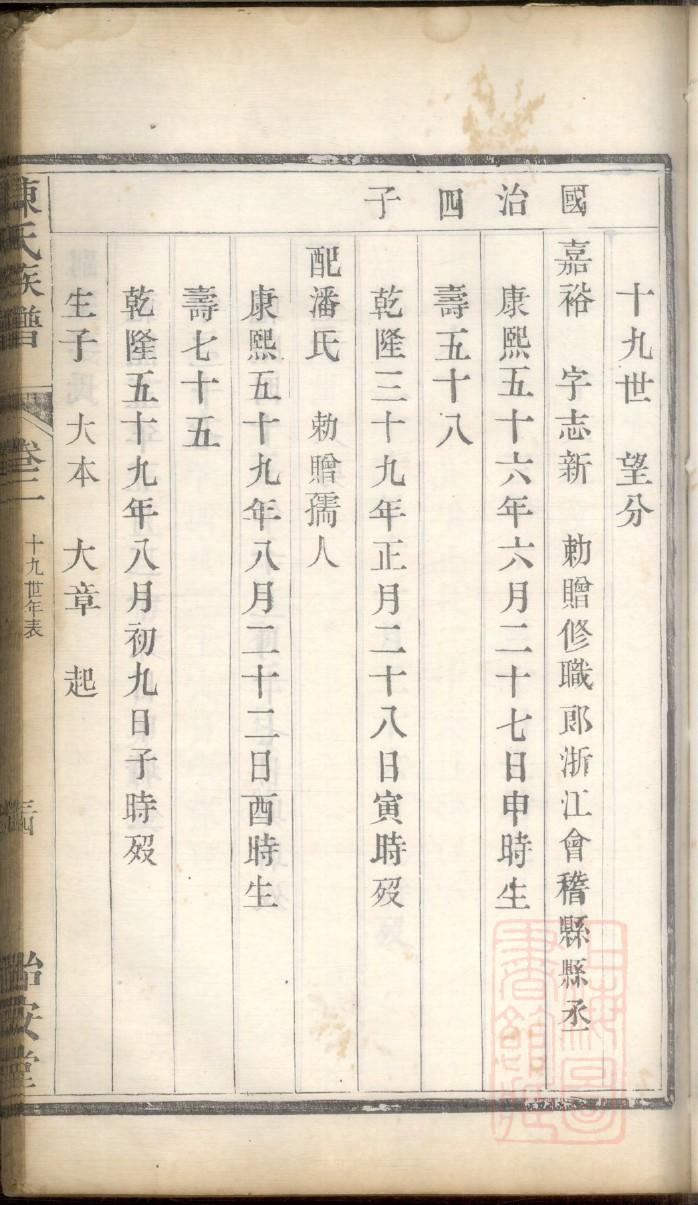 十九世　望分
國治四子
嘉裕　字志新　勅贈修職郎浙江會稽縣縣丞
康熙五十六年六月二十七日申時生
壽五十八
乾隆三十九年正月二十八日寅時歿
配潘氏　勅贈孺人
康熙五十九年八月二十二日酉時生
壽七十五
乾隆五十九年八月初九日子時歿
生子　大本　大章　起
陳氏族譜　卷二　十九世年表　怡安堂
上海圖書館藏